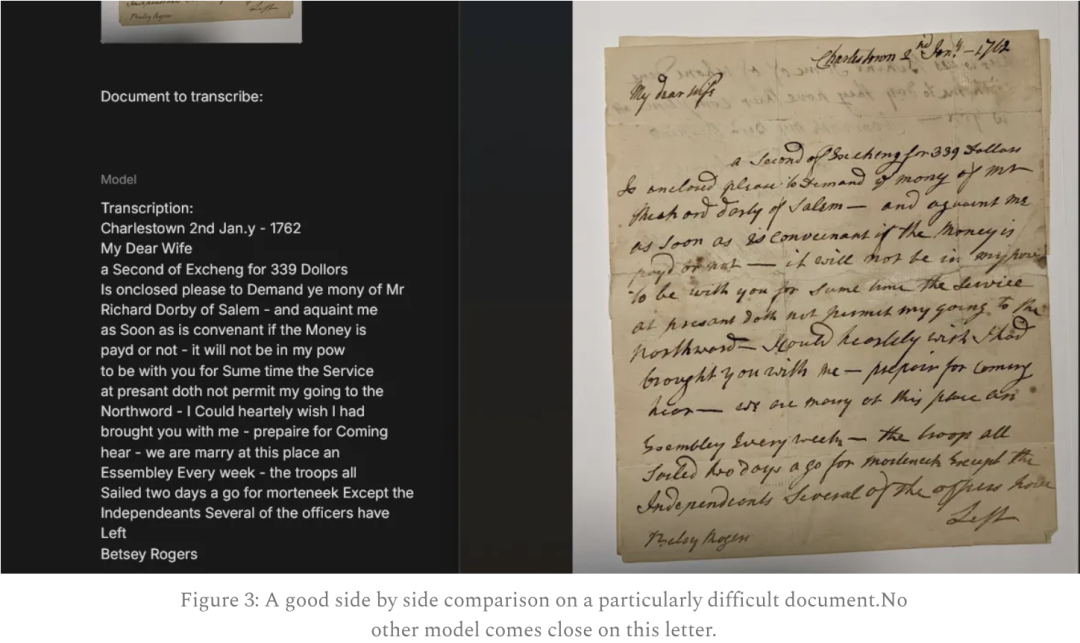 Document to transcribe:
Model
Transcription:
Charlestown 2nd Jan.y - 1762
My Dear Wife
a Second of Excheng for 339 Dollors
Is onclosed please to Demand ye mony of Mr
Richard Dorby of Salem - and aquaint me
as Soon as is convenant if the Money is
payd or not - it will not be in my pow
to be with you for Sume time the Service
at presant doth not permit my going to the
Northword - I Could heartely wish I had
brought you with me - prepaire for Coming
hear - we are marry at this place an
Essembley Every week - the troops all
Sailed two days a go for morteneek Except the
Independeants Several of the officers have
Left
Betsey Rogers
Charlestown 2nd Jan.y - 1762
My dear wife
a Second of Excheng for 339 Dollars
Is enclosed please to Demand ye mony of Mr
darby of Salem — and aquaint me
as Soon as is convenant if the Money is
payd or not — it will not be in my pow
to be with you for Sume time the Service
at presant doth not permit my going to the
Northward — I Could heartely wish I had
brought you with me — prepair for Coming
hear — we are marry at this place an
Essembley Every week — the troop all
Sailed two days a go for morteneck Except the
Independants Several of the officers have
Left
Betsy Rogers
Figure 3: A good side by side comparison on a particularly difficult document.No
other model comes close on this letter.